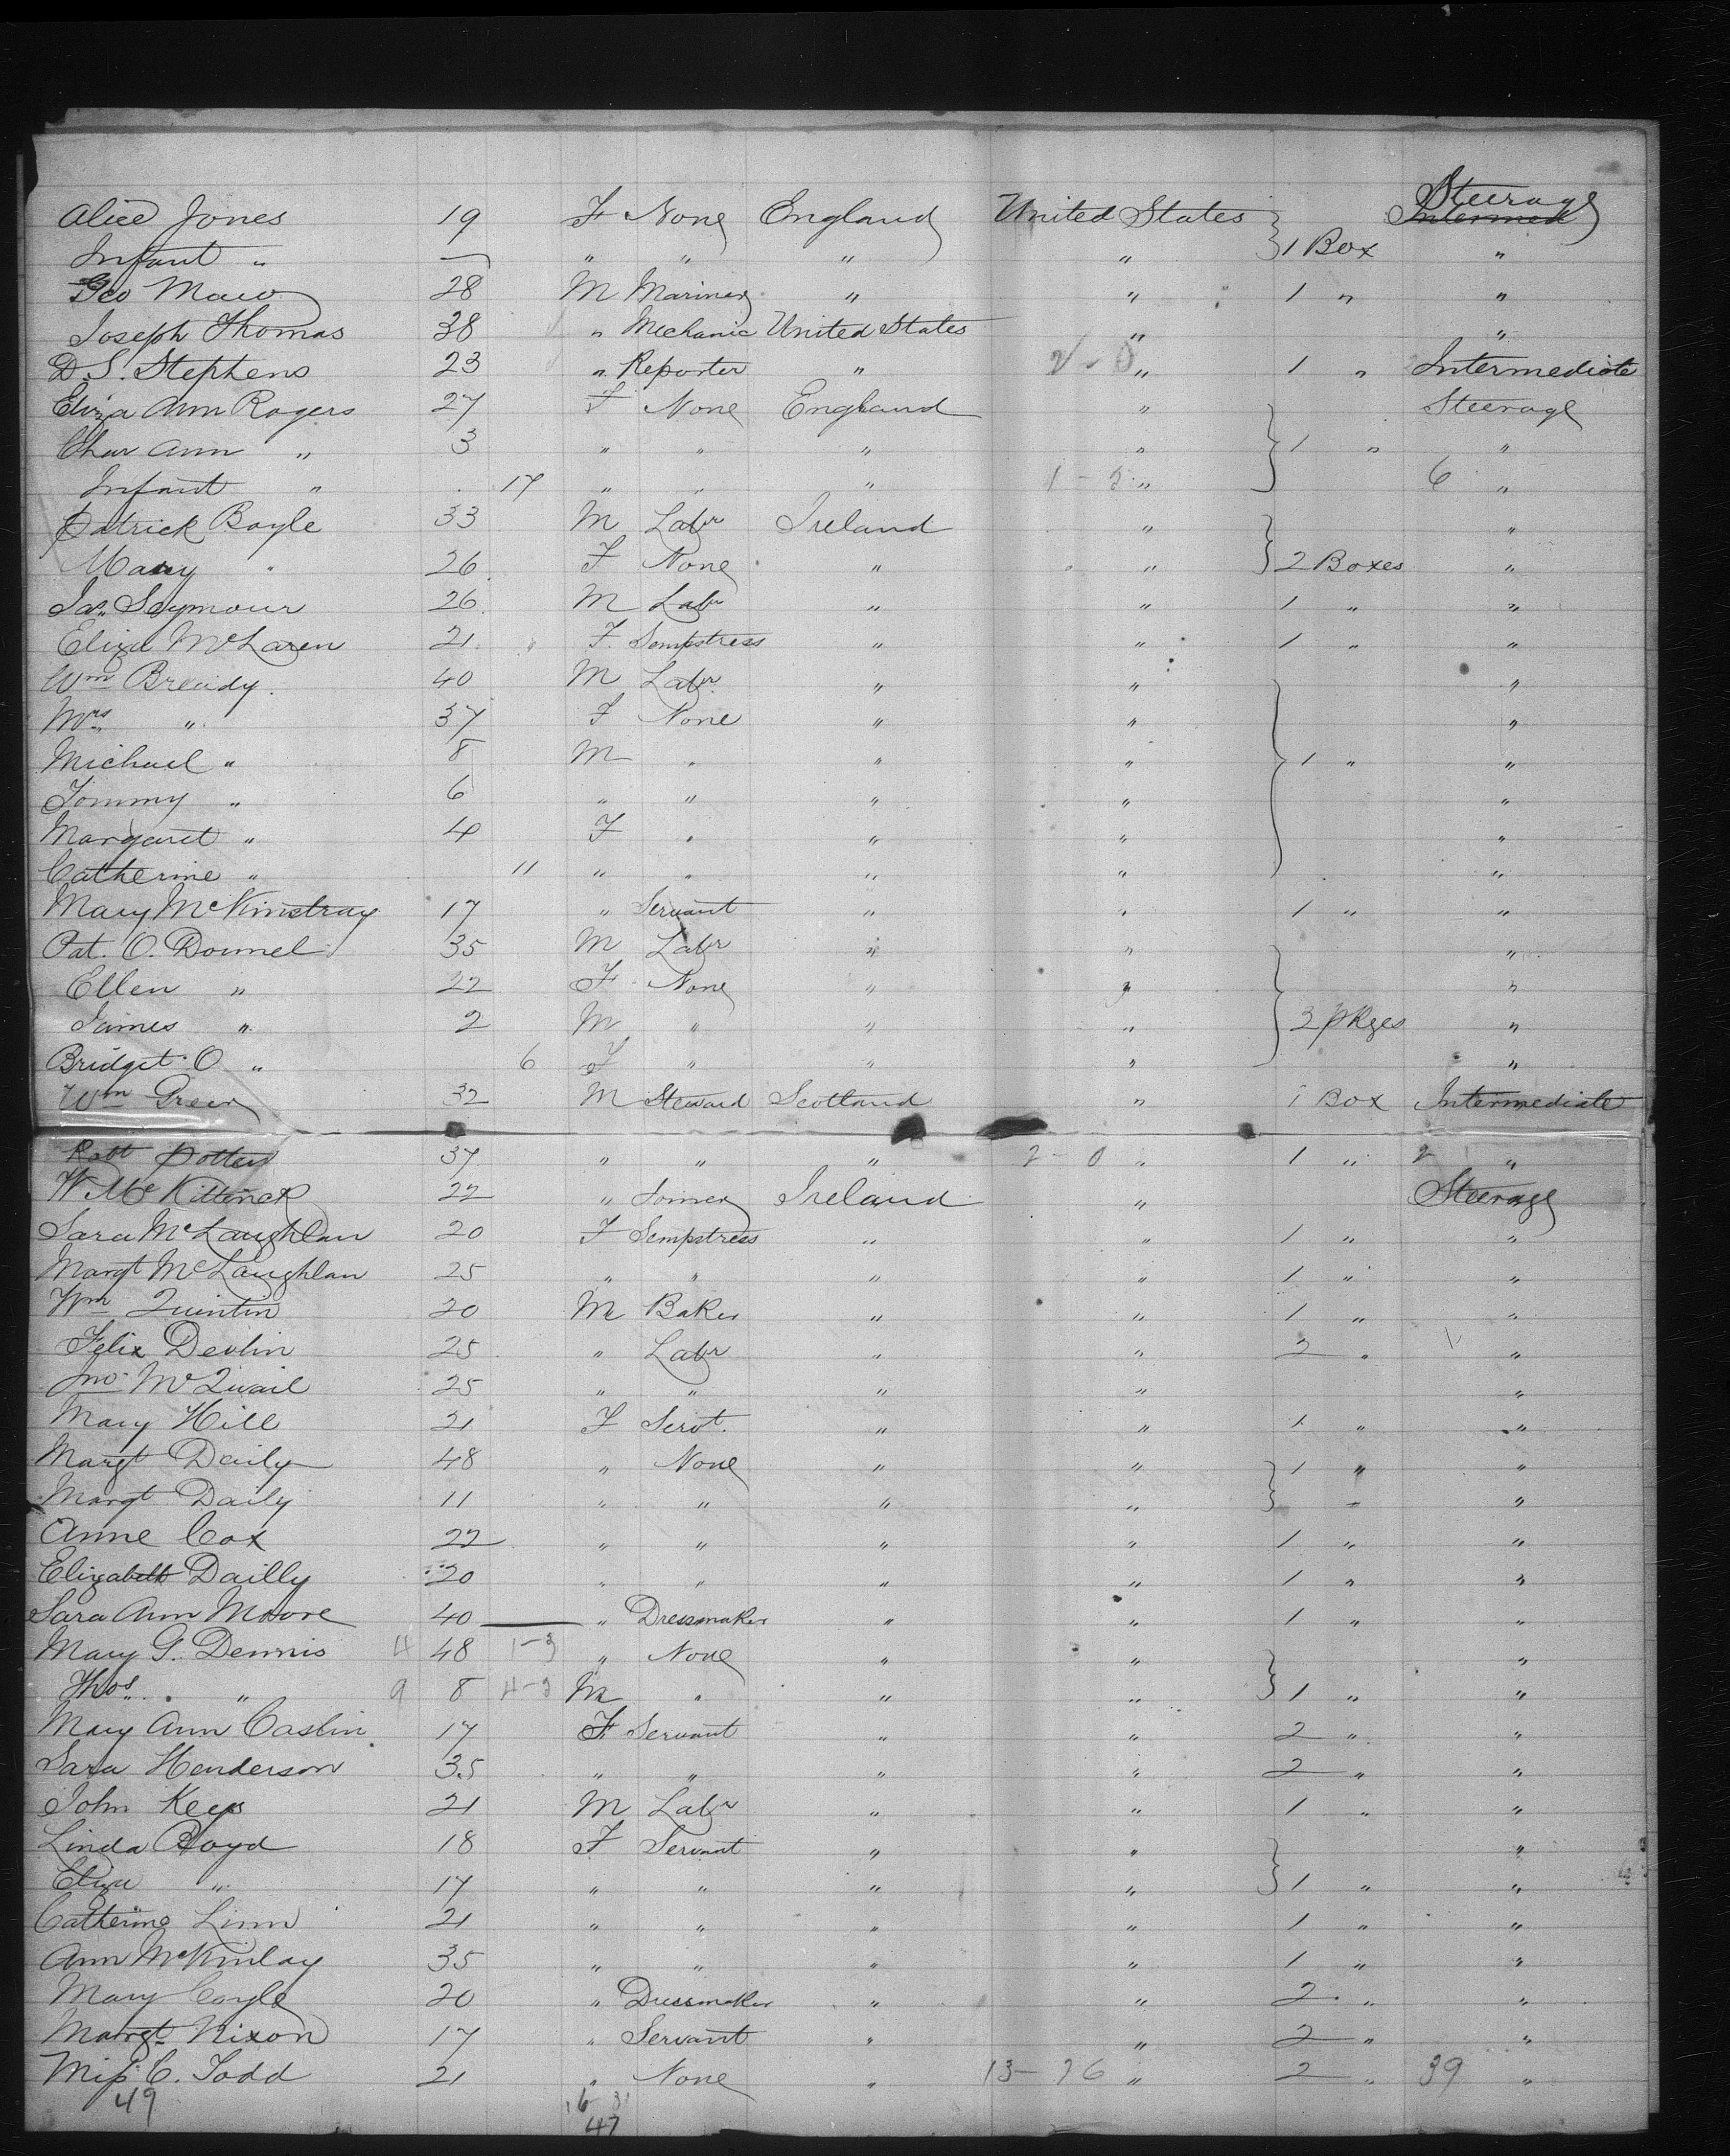 Steerage
Alice Jones 19 F None England United States Intermed
Infant " — " " " " 1 Box "
Geo Mawo 28 M Mariner " " 1 " "
Joseph Thomas 38 " Mechanic United States " "
D. S. Stephens 23 " Reporter " 2 - 0 " 1 " Intermediate
Eliza Ann Rogers 27 F None England " Steerage
Char Ann " 3 " " " " 1 " "
Infant " 17 " " " 1 - 5 " 6 "
Patrick Boyle 33 M Labr Ireland " "
Mary " 26 F None " " 2 Boxes "
Jas. Seymour 26 M Labr " " 1 " "
Eliza McLaren 21 F Sempstress " " 1 " "
Wm Bready 40 M Labr " " "
Mrs " 37 F None " " "
Michael " 8 M " " " 1 " "
Tommy " 6 " " " " "
Margaret " 4 F " " " "
Catherine " 11 " " " " "
Mary McKinstray 17 " Servant " " 1 " "
Pat. O. Donnel 35 M Labr " " "
Ellen " 22 F None " " "
James " 2 M " " " 3 pkges "
Bridget O " 6 F " " " "
Wm Greer 32 M Steward Scotland " 1 Box Intermediate
Robt Potter 37 " " " 2 - 0 " 1 " 2 "
W. McKittrick 22 " Joiner Ireland " Steerage
Sara McLaughlan 20 F Sempstress " " 1 " "
Margt McLaughlan 25 " " " " 1 " "
Wm Quintin 20 M Baker " " 1 " "
Felix Devlin 25 " Labr " " 2 " "
Jno. McQuail 25 " " " " "
Mary Hill 21 F Servt. " " 1 " "
Margt Daily 48 " None " " 1 " "
Margt Daily 11 " " " " " "
Anne Cox 22 " " " " 1 " "
Elizabeth Dailly 20 " " " " 1 " "
Sara Ann Moore 40 — " Dressmaker " " 1 " "
Mary G. Dennis 4 48 1-3 " None " " "
Thos. " 9 8 4-3 M " " " 1 " "
Mary Ann Caslin 17 F Servant " " 2 " "
Sara Henderson 35 " " " " 2 " "
John Keys 21 M Labr " " 1 " "
Linda Boyd 18 F Servant " " "
Eliza " 17 " " " " 1 " "
Catherine Linn 21 " " " " 1 " "
Ann McKinlay 35 " " " " 1 " "
Mary Coyle 20 " Dressmaker " " 2 " "
Margt Nixon 17 " Servant " " 2 " "
Miss C. Todd 21 " None " 13 - 26 " 2 " 39 "
49 16 31
47